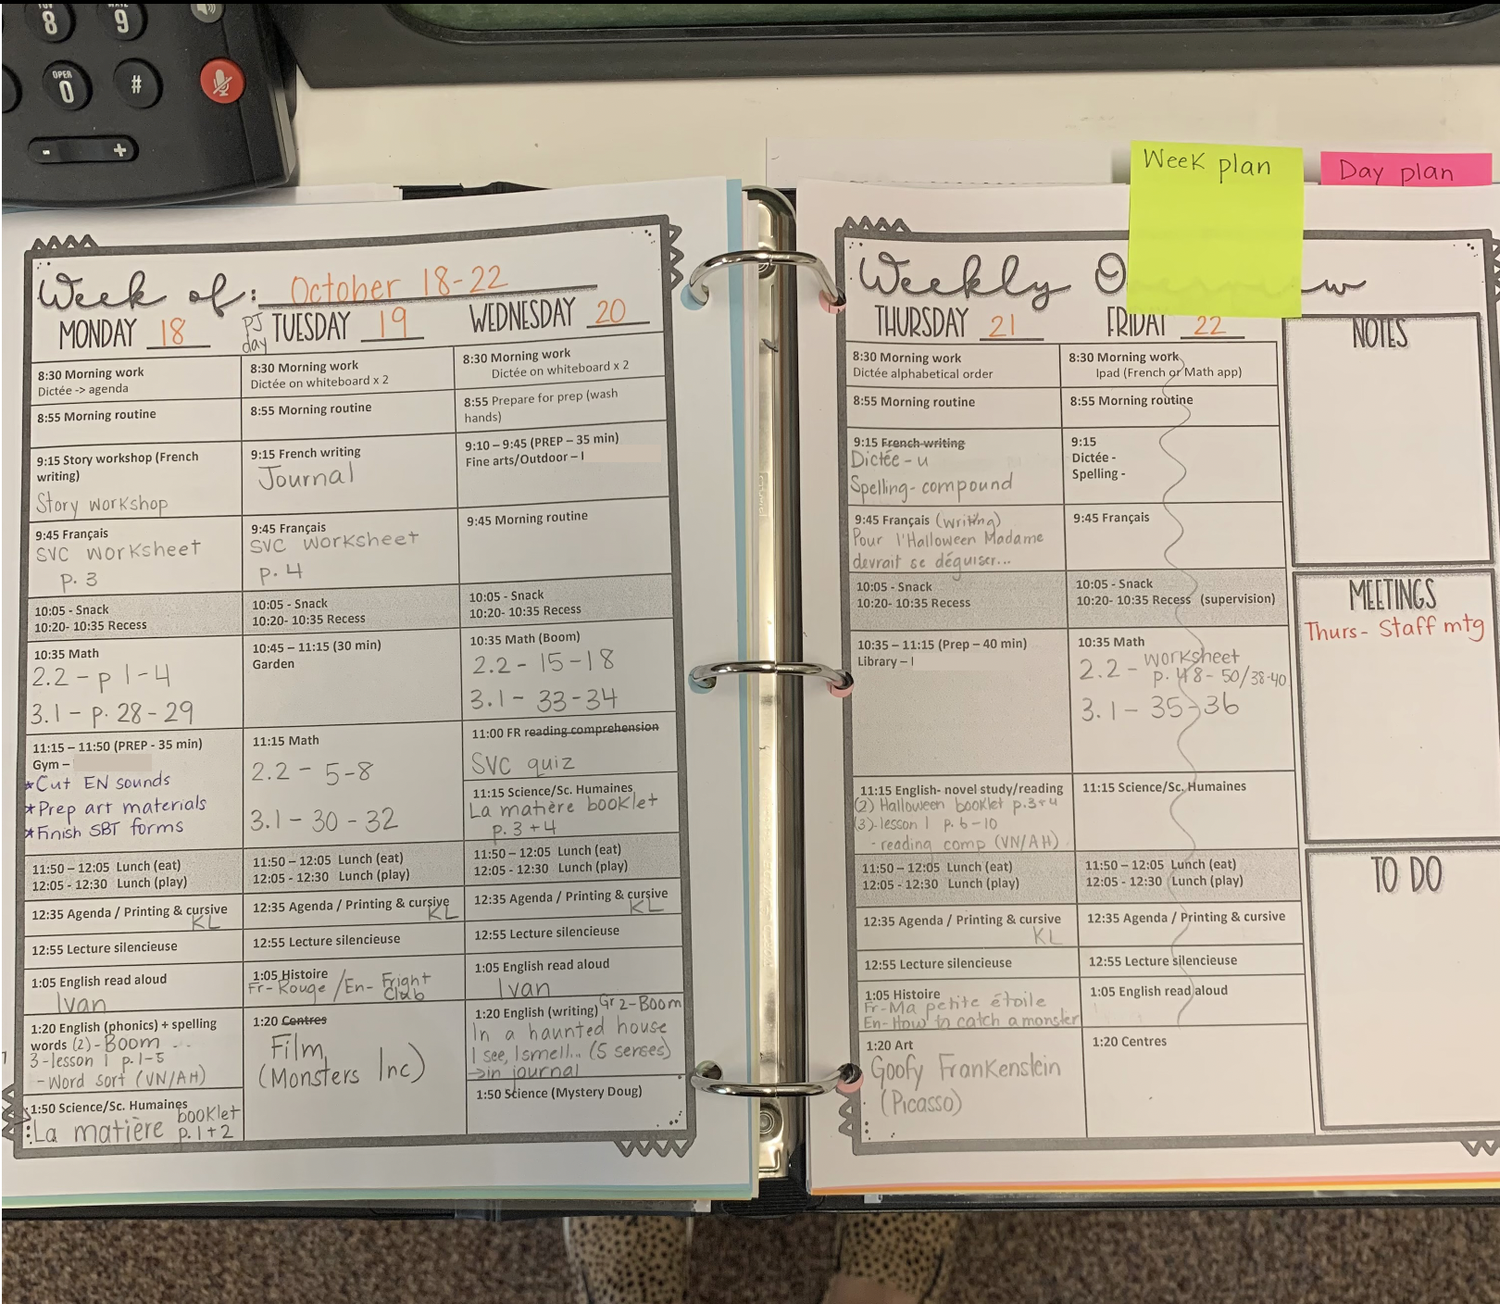 8
9
OPER
0
#
-
+
Week plan
Day plan
Week of: October 18-22
MONDAY 18
PJ day
TUESDAY 19
WEDNESDAY 20
8:30 Morning work
Dictée -> agenda
8:55 Morning routine
9:15 Story workshop (French
writing)
Story workshop
9:45 Français
SVC worksheet
p. 3
10:05 - Snack
10:20- 10:35 Recess
10:35 Math
2.2 - p 1-4
3.1 - p. 28-29
11:15 – 11:50 (PREP - 35 min)
Gym –
*Cut EN sounds
*Prep art materials
*Finish SBT forms
11:50 – 12:05 Lunch (eat)
12:05 - 12:30 Lunch (play)
12:35 Agenda / Printing & cursive
KL
12:55 Lecture silencieuse
1:05 English read aloud
Ivan
1:20 English (phonics) + spelling
words (2)- Boom ...
3-lesson 1 p.1-5
- Word sort (VN/AH)
1:50 Science/Sc. Humaines
La matière booklet
p. 1+2
8:30 Morning work
Dictée on whiteboard x 2
8:55 Morning routine
9:15 French writing
Journal
9:45 Français
SVC worksheet
p. 4
10:05 - Snack
10:20- 10:35 Recess
10:45 – 11:15 (30 min)
Garden
11:15 Math
2.2 - 5-8
3.1 - 30-32
11:50 – 12:05 Lunch (eat)
12:05 - 12:30 Lunch (play)
12:35 Agenda / Printing & cursive
KL
12:55 Lecture silencieuse
1:05 Histoire
Fr- Rouge /En- Fright
Club
1:20 Centres
Film
(Monsters Inc)
8:30 Morning work
Dictée on whiteboard x 2
8:55 Prepare for prep (wash
hands)
9:10 – 9:45 (PREP – 35 min)
Fine arts/Outdoor – I
9:45 Morning routine
10:05 - Snack
10:20- 10:35 Recess
10:35 Math (Boom)
2.2 - 15-18
3.1 - 33-34
11:00 FR reading comprehension
SVC quiz
11:15 Science/Sc. Humaines
La matière booklet
p. 3+4
11:50 – 12:05 Lunch (eat)
12:05 - 12:30 Lunch (play)
12:35 Agenda / Printing & cursive
KL
12:55 Lecture silencieuse
1:05 English read aloud
Ivan
1:20 English (writing) Gr 2-Boom
In a haunted house
I see, I smell... (5 senses)
->in journal
1:50 Science (Mystery Doug)
Weekly
THURSDAY 21
FRIDAY 22
8:30 Morning work
Dictée alphabetical order
8:55 Morning routine
9:15 French writing
Dictée - u
Spelling- compound
9:45 Français (writing)
Pour l'Halloween Madame
devrait se déguiser...
10:05 - Snack
10:20- 10:35 Recess
10:35 – 11:15 (Prep – 40 min)
Library – I
11:15 English- novel study/reading
(2) Halloween booklet p.3+4
(3)-lesson 1 p. 6-10
- reading comp (VN/AH)
11:50 – 12:05 Lunch (eat)
12:05 - 12:30 Lunch (play)
12:35 Agenda / Printing & cursive
KL
12:55 Lecture silencieuse
1:05 Histoire
Fr-Ma petite étoile
En-How to catch a monster
1:20 Art
Goofy Frankenstein
(Picasso)
8:30 Morning work
Ipad (French or Math app)
8:55 Morning routine
9:15
Dictée -
Spelling -
9:45 Français
10:05 - Snack
10:20- 10:35 Recess (supervision)
10:35 Math
2.2 - worksheet
p. 48-50/38-40
3.1 - 35-36
11:15 Science/Sc. Humaines
11:50 – 12:05 Lunch (eat)
12:05 - 12:30 Lunch (play)
12:35 Agenda / Printing & cursive
12:55 Lecture silencieuse
1:05 English read aloud
1:20 Centres
NOTES
MEETINGS
Thurs- Staff mtg
TO DO